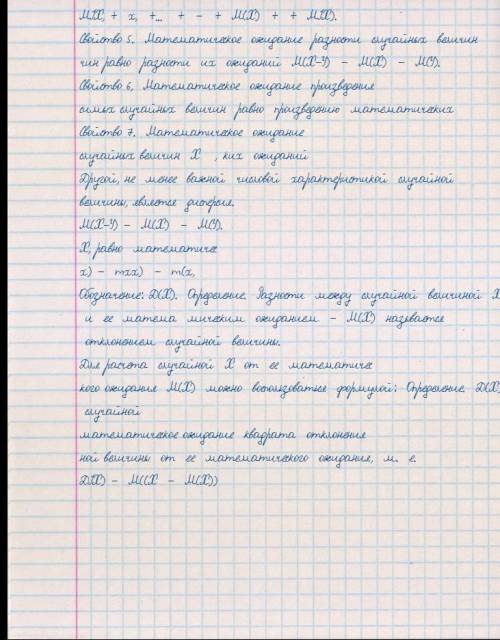 М(X, + x, +... + - + М(X) + + М(X).
Свойство 5. Математическое ожидание разности случайных величин
чин равно разности их ожиданий М(X-У) - М(X) - М(У).
Свойство 6, Математическое ожидание произведение
симых случайных величин равно произведению математических
Свойство 7. Математическое ожидание
случайных величин X , ких ожиданий
Другой, не менее важной числовой характеристикой случайной
величины, является дисперсия.
М(X-У) - М(X) - М(У).
X, равно математиче
x) - mxx) - m(x,
Обозначение: D(X). Определение. Разности между случайной величиной X
и ее матема мическим ожиданием - М(X) называется
отклонением случайной величины.
Для расчета случайной X от ее математиче
кого ожидания М(X) можно воспользоваться формулой: Определение. D(X)
случайной
математическое ожидание квадрата отклонения
ной величины от ее математического ожидания, т. е.
D(X) - М((X - М(X))